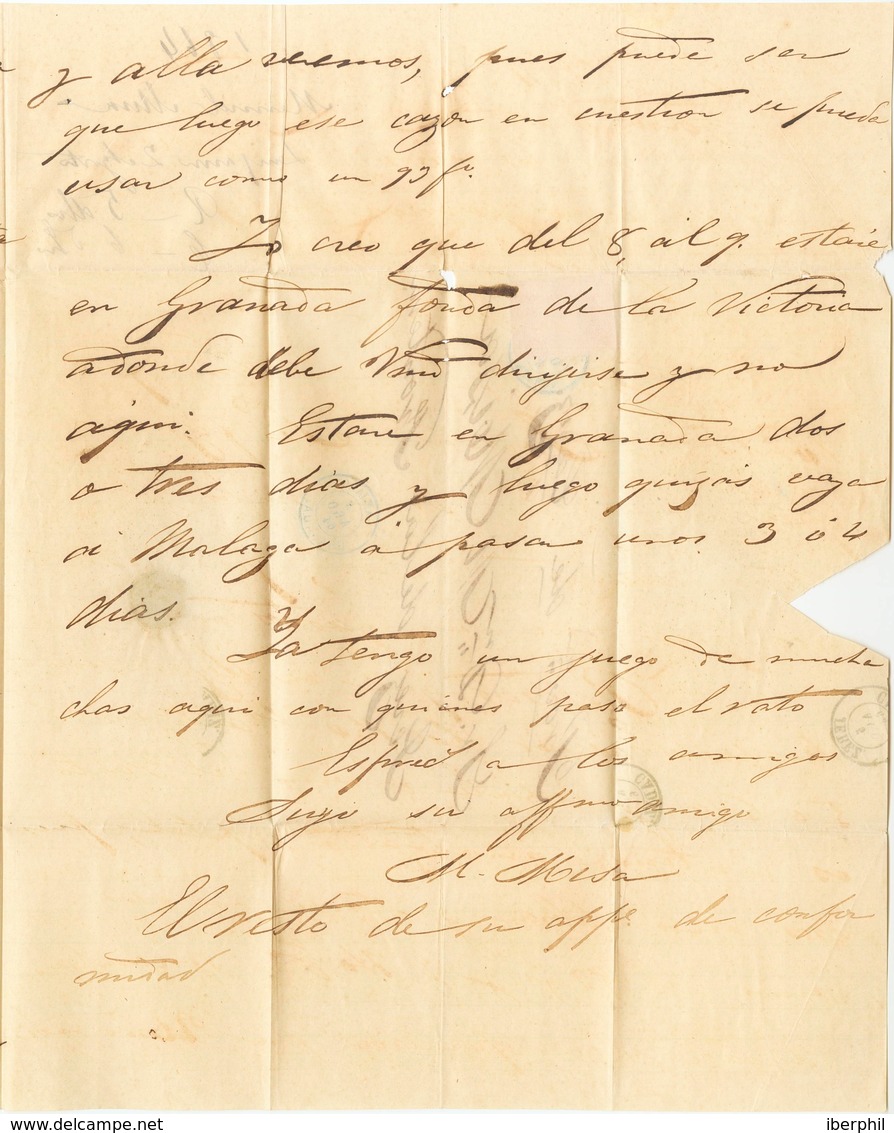 y alla veremos, pues puede ser
que luego ese cazon en cuestion se pueda
usar como un
Yo creo que del 8, al 9. estaré
en Granada fonda de la Victoria
adonde debe Vmd dirijirse y no
aqui. Estare en Granada dos
o tres dias y luego quizás vaya
a Malaga á pasar unos 3 ó 4
dias.
Ya tengo un juego de mucha
chas aqui con quiénes paso el rato
a los amigos
Suyo su affmo amigo
M. Mesa
El resto de su de confor
midad
delcampe.net
iberphil